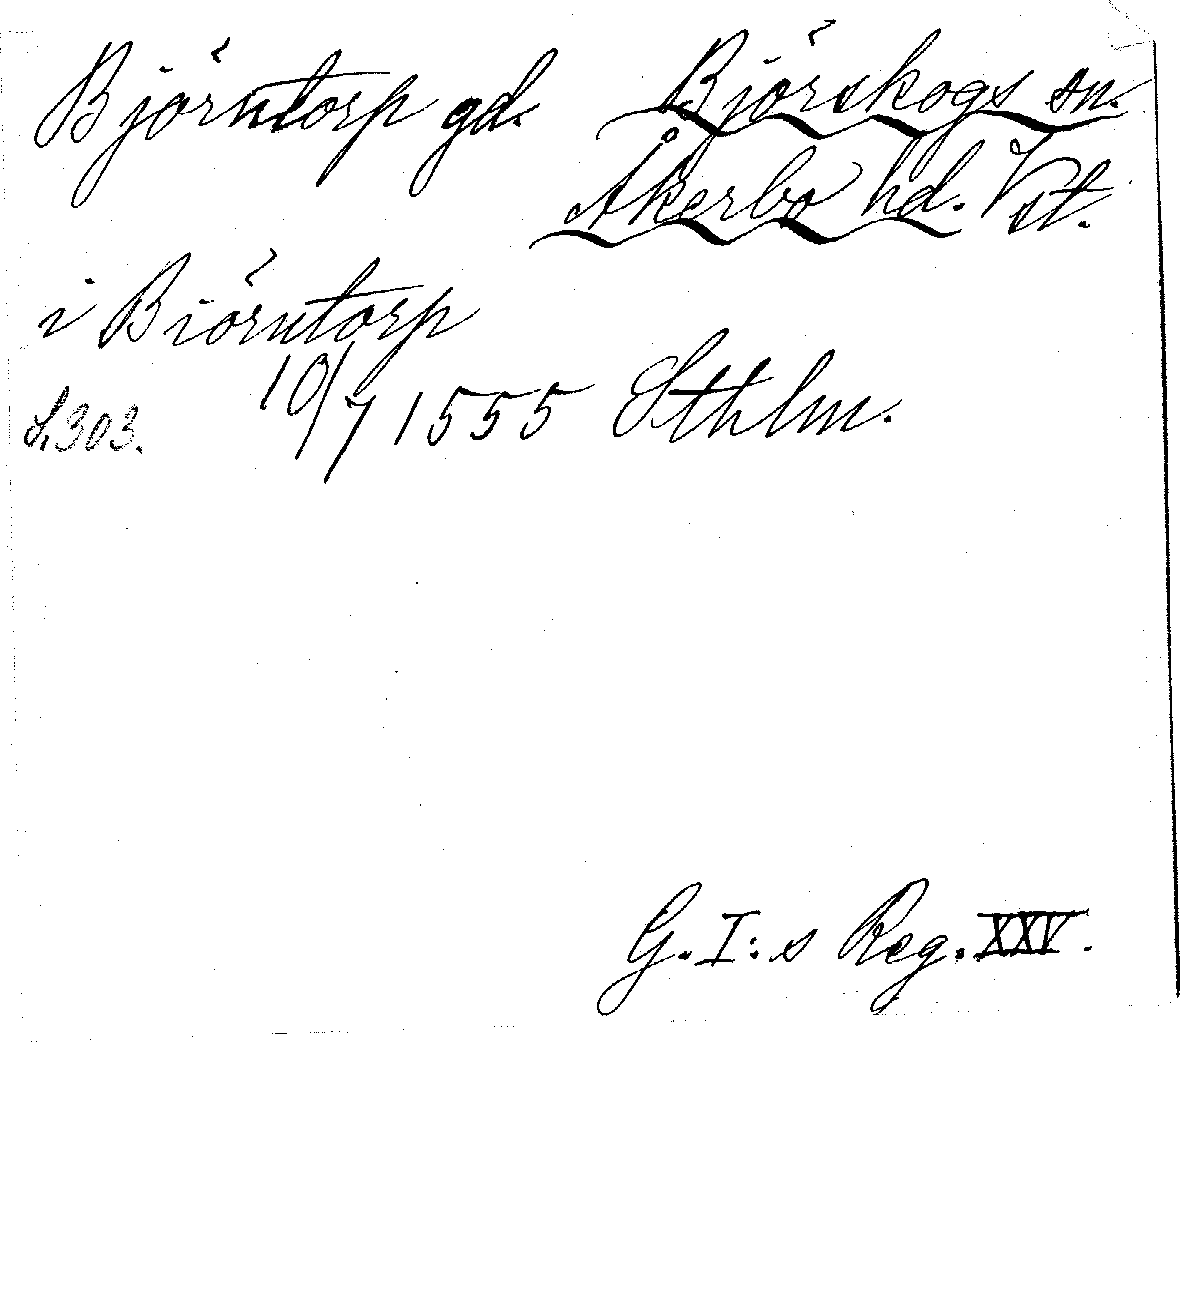 Björntorp gd. Björskogs sn.
Åkerbo hd. Vst.
i Biörntorp
S. 303. 10/7 1555 Sthlm.
G. I:s Reg. XXV.